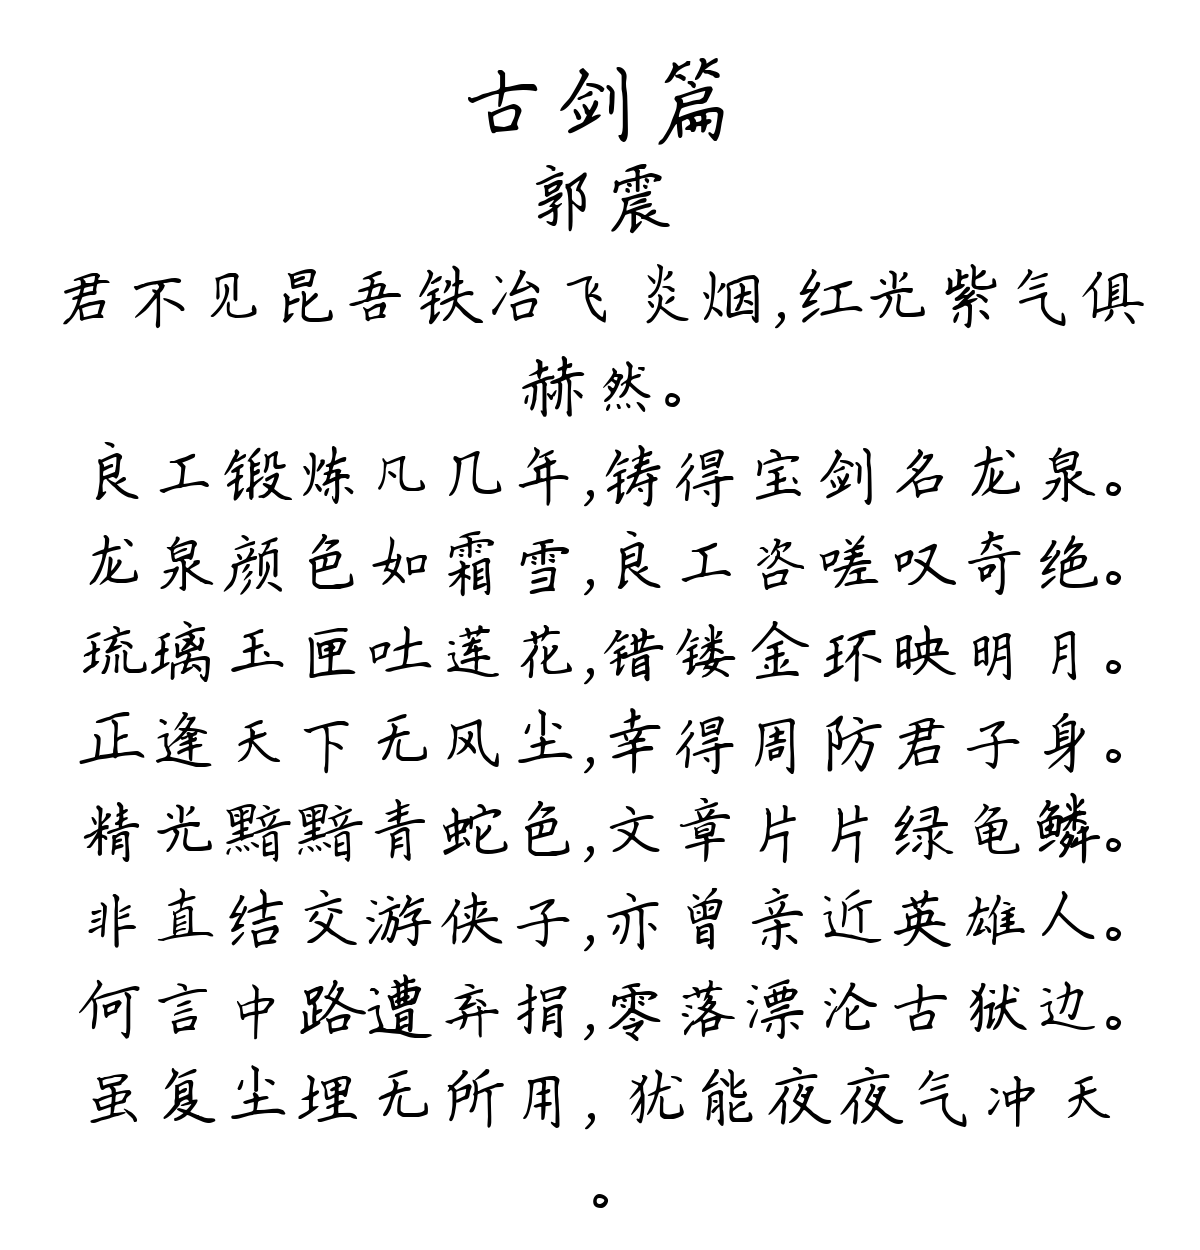 古剑篇
郭震
君不见昆吾铁冶飞炎烟,红光紫气俱
赫然。
良工锻炼凡几年,铸得宝剑名龙泉。
龙泉颜色如霜雪,良工咨嗟叹奇绝。
琉璃玉匣吐莲花,错镂金环映明月。
正逢天下无风尘,幸得周防君子身。
精光黯黯青蛇色,文章片片绿龟鳞。
非直结交游侠子,亦曾亲近英雄人。
何言中路遭弃捐,零落漂沦古狱边。
虽复尘埋无所用,犹能夜夜气冲天
。